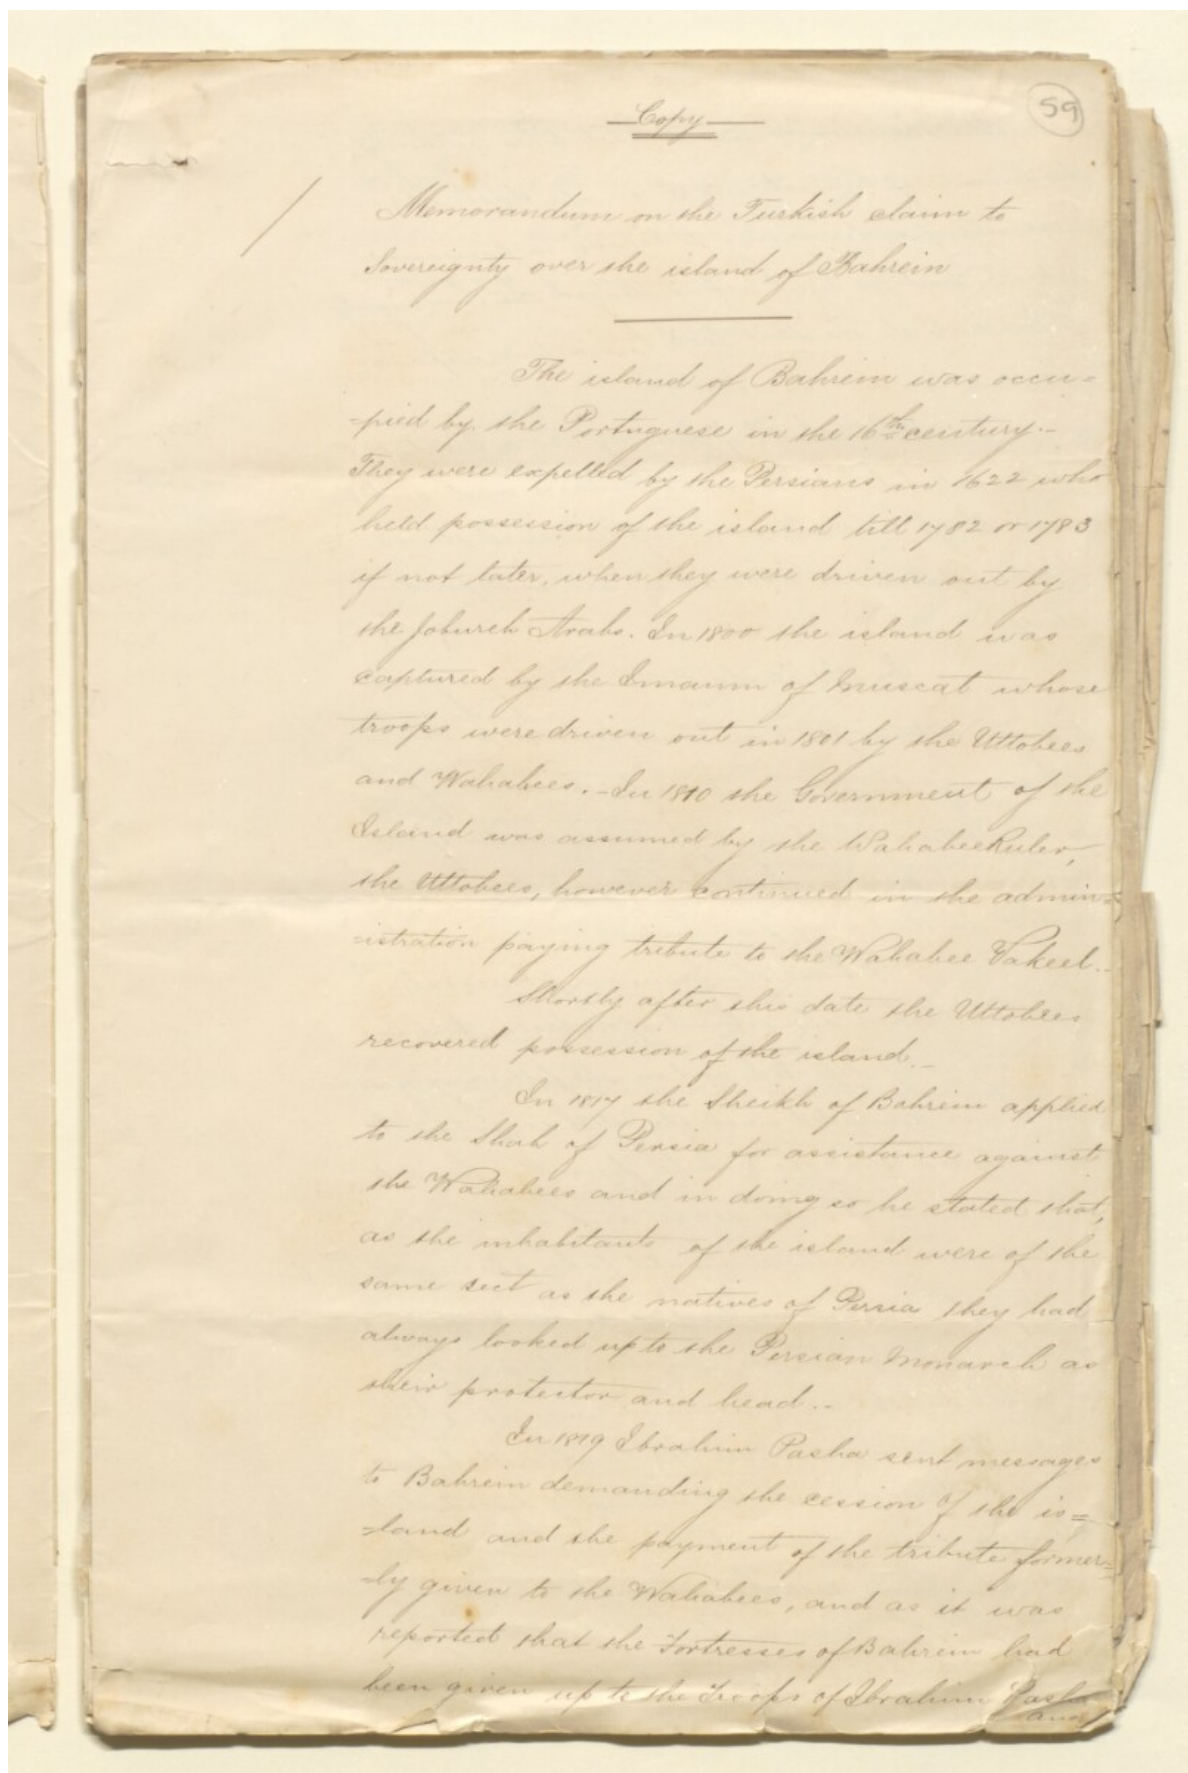 Copy
59
Memorandum on the Turkish claim to
Sovereignty over the island of Bahrein
The island of Bahrein was occu=
=pied by the Portuguese in the 16th century.-
They were expelled by the Persians in 1622 who
held possession of the island till 1782 or 1783
if not later, when they were driven out by
the Joburch Arabs. In 1800 the island was
captured by the Imaum of Muscat whose
troops were driven out in 1801 by the Uttobees
and Wahabees.-In 1810 the Government of the
Island was assumed by the Wahabee Ruler,
the Uttobees, however continued in the admin=
=istration paying tribute to the Wahabee Vakeel.-
Shortly after this date the Uttobees
recovered possession of the island.-
In 1817 the Sheikh of Bahrein applied
to the Shah of Persia for assistance against
the Wahabees and in doing so he stated that,
as the inhabitants of the island were of the
same sect as the natives of Persia they had
always looked up to the Persian Monarch as
their protector and head.-
In 1819 Ibrahim Pasha sent messages
to Bahrein demanding the cession of the is=
=land and the payment of the tribute former=
=ly given to the Wahabees, and as it was
reported that the Fortresses of Bahrein had
been given up to the Troops of Ibrahim Pasha
and